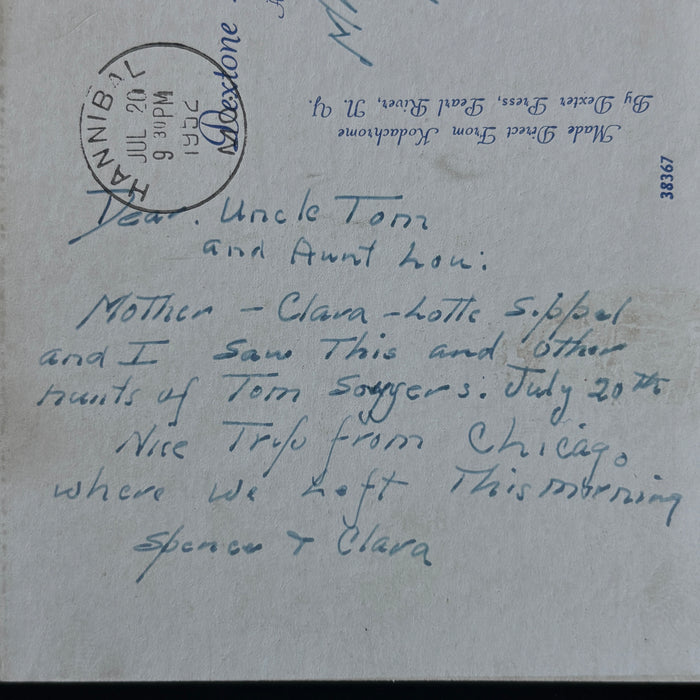 HANNIBAL
JUL 20
9 30 PM
1952
Dextone
Made Direct From Kodachrome
By Dexter Press, Pearl River, N. Y.
38367
Dear. Uncle Tom
and Aunt Lou:
Mother - Clara - Lotte Sippel
and I Saw This and other
haunts of Tom Sawyers. July 20th
Nice Trip from Chicago
where we Left This morning
Spencer + Clara